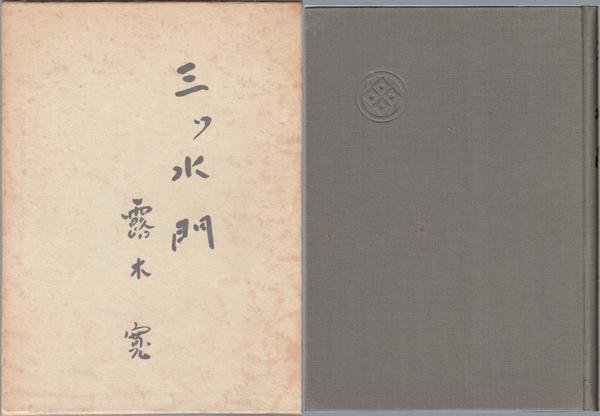 三ッ水門
露木寛